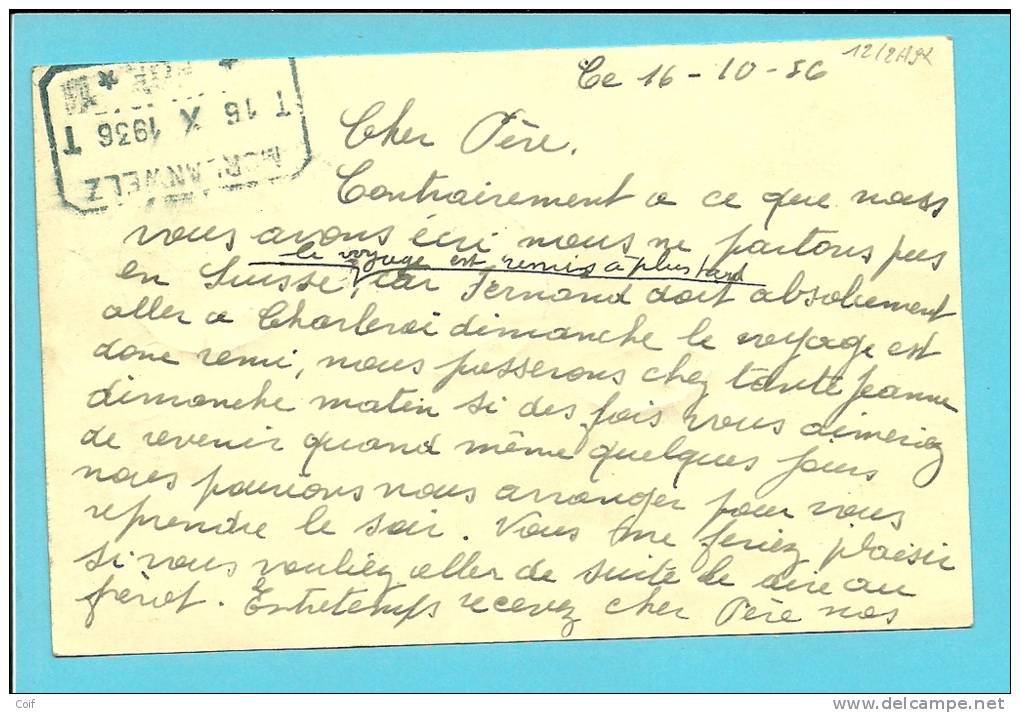 12/2/192
Ce 16-10-36
MORLANWELZ
T 16 X 1936 T
Cher Père.
Contrairement a ce que nous
vous avons écri nous ne partons pas
le voyage est remis à plus tard
en Suisse, car Fernand doit absolument
aller a Charleroi dimanche le voyage est
donc remi, nous passerons chez tante Jeanne
dimanche matin si des fois vous aimeriez
de revenir quand même quelques jours
nous pourrions nous arranger pour vous
reprendre le soir. Vous me feriez plaisir
si vous vouliez aller de suite le dire au
. Entretemps recevez cher Père nos
Coif
http://www.delcampe.net